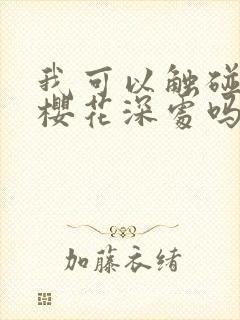 我可以触碰
樱花深处吗
加藤衣绪